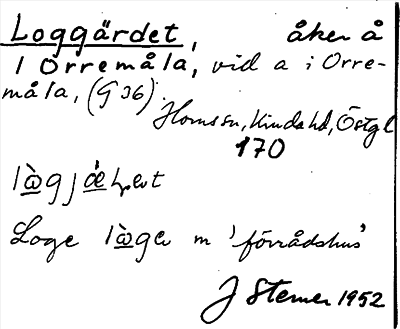 Loggärdet, åker å
1 Orremåla, vid a i Orre-
måla, (G 36).
Hornssn, Kinda hd, Östgl
170
Loge m 'förrådshus'
J Stemer 1952